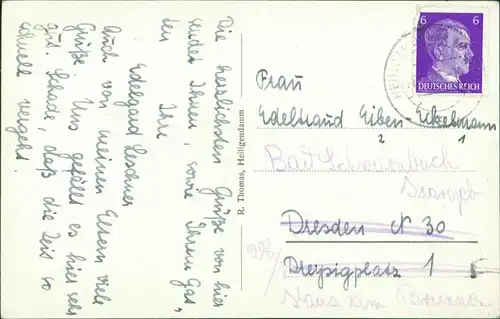 Die herzlichsten Grüße von hier
sendet Ihnen, sowie Ihrem Gat,
ten Ihre
Edelgard Lerchner
Auch von meinen Eltern viele
Grüße. Uns gefällt es hier sehr
gut. Schade, daß die Zeit so
schnell vergeht.
R. Thomas, Heiligendamm
6 6
DEUTSCHES REICH
Frau
Edeltraud Eiben-Eckelmann
2 1
Bad Schwarzbach
Isergeb
Dresden N 30
Dreysigplatz 1
Haus am Brunnen